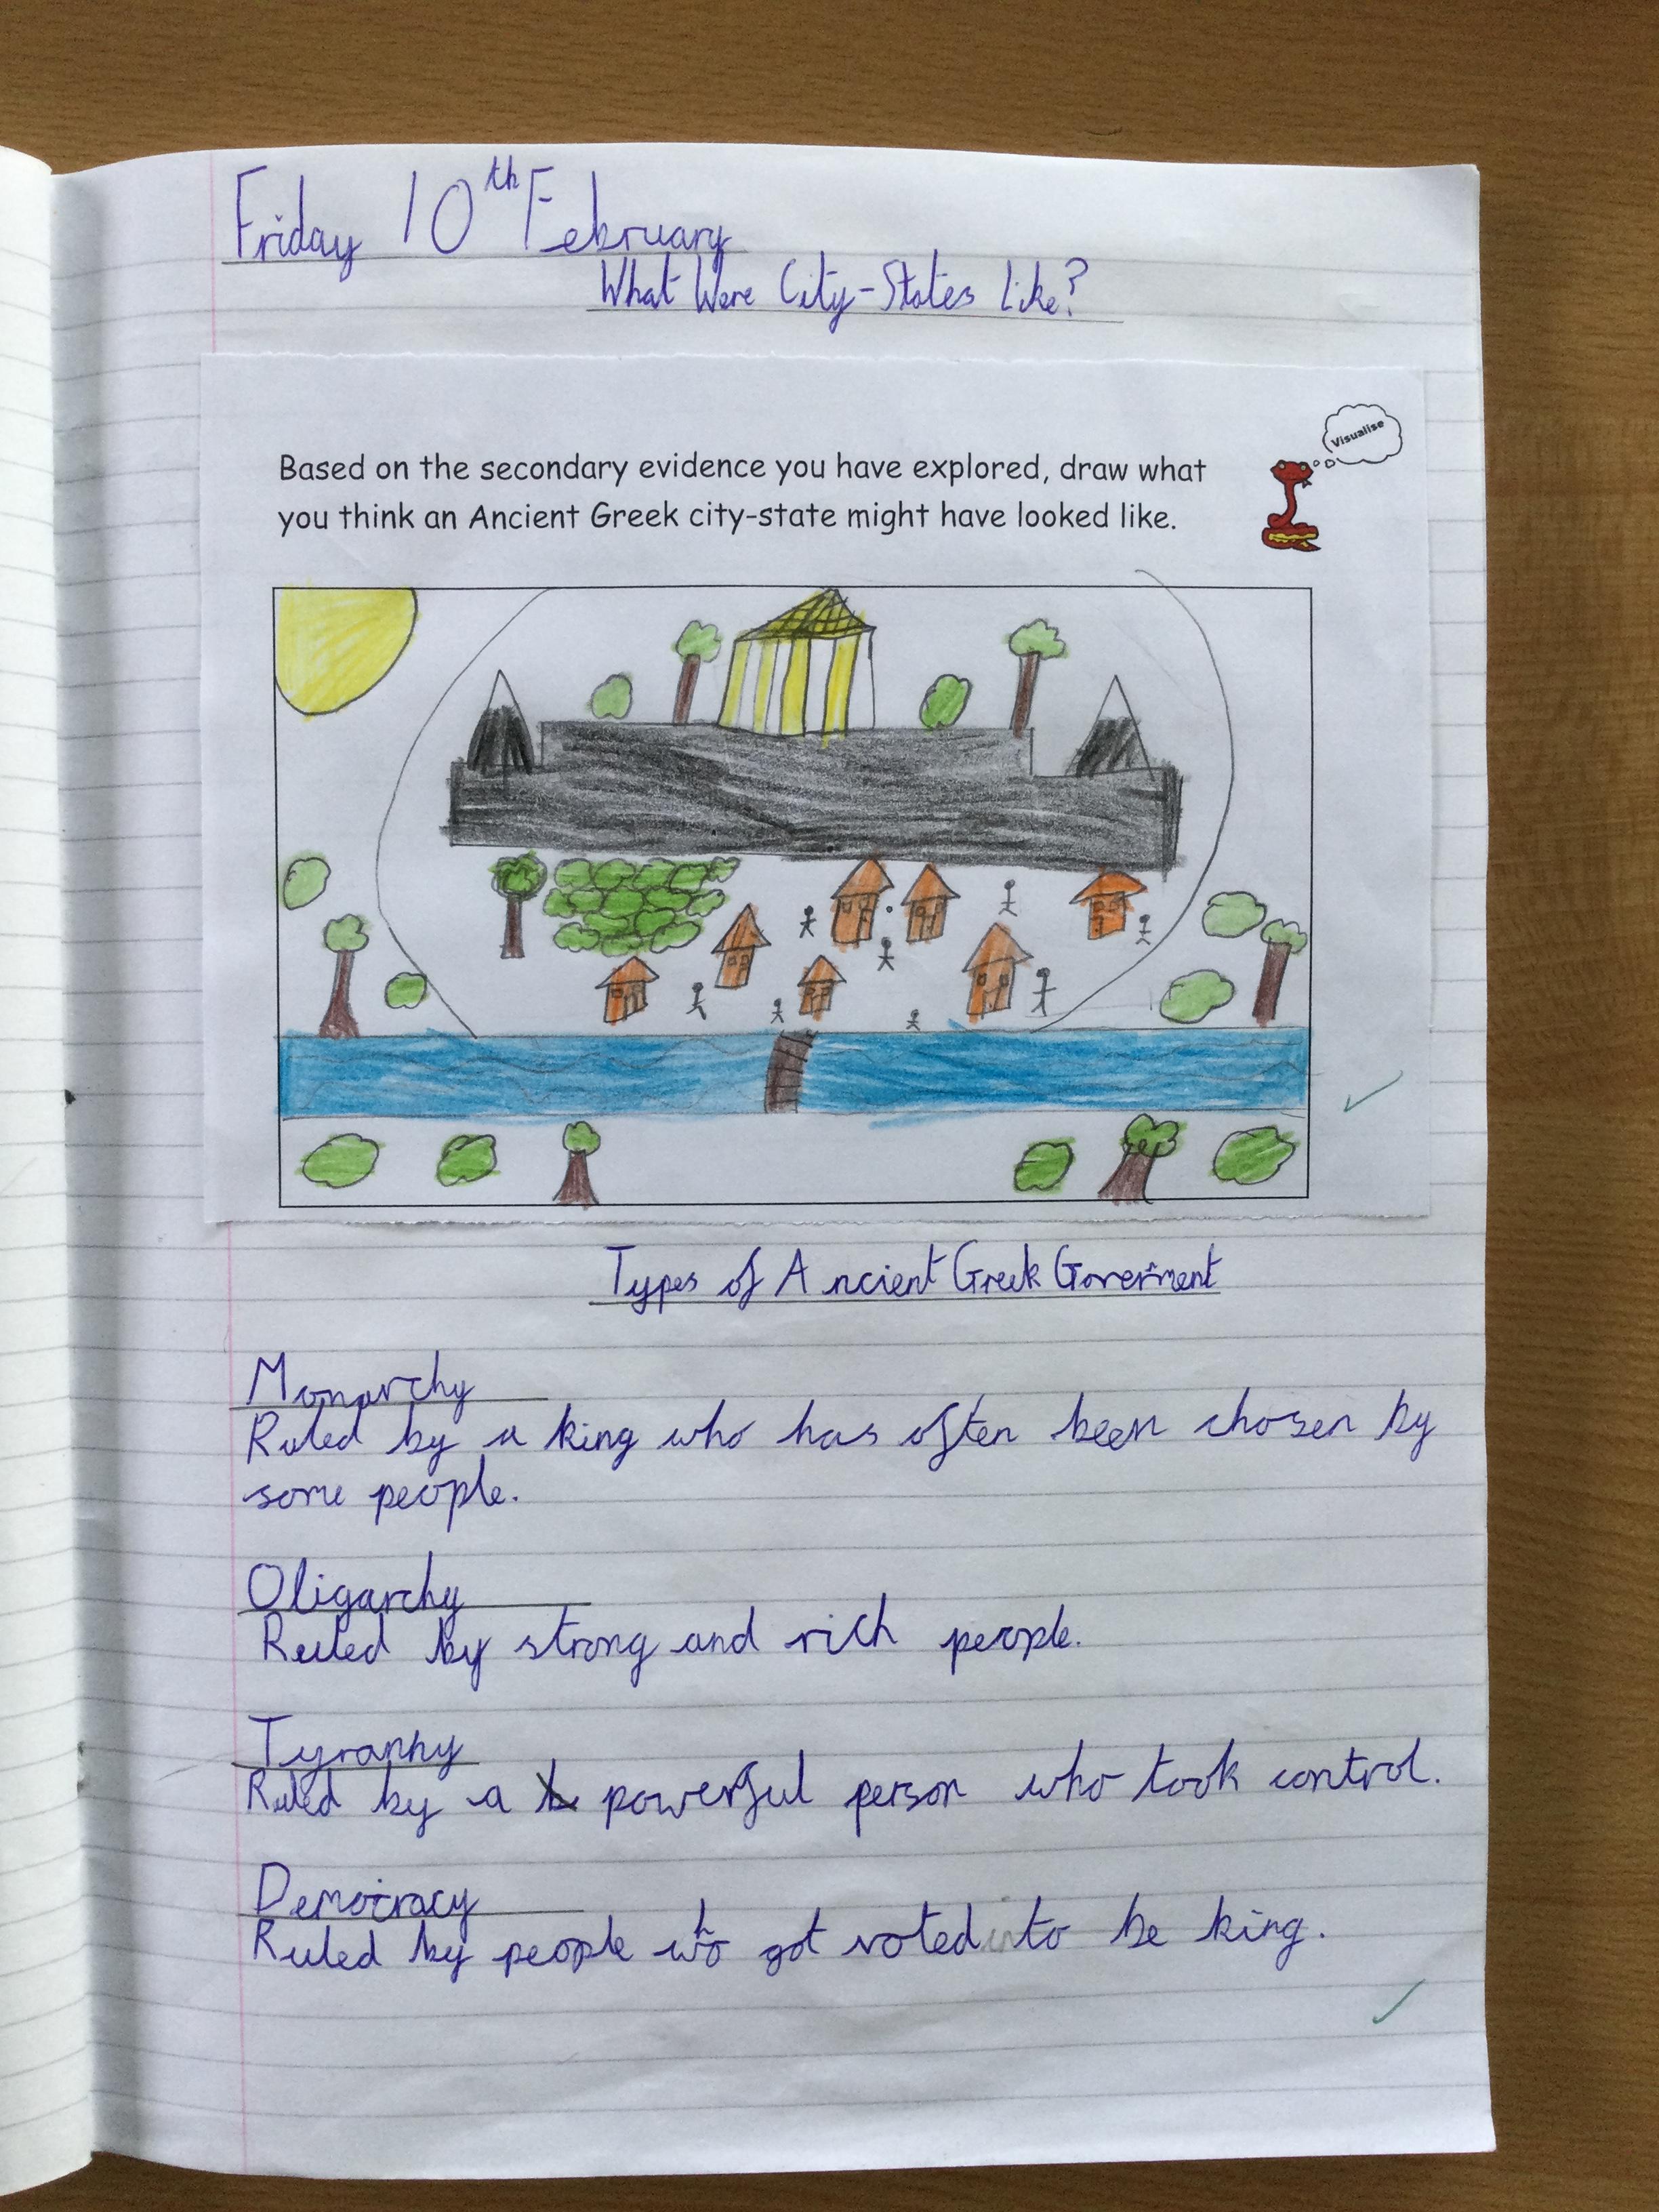 Friday 10th February
What Were City-States Like?
Visualise
Based on the secondary evidence you have explored, draw what
you think an Ancient Greek city-state might have looked like.
Types of Ancient Greek Goverment
Monarchy
Ruled by a king who has often been chosen by
some people.
Oligarchy
Ruled by strong and rich people.
Tyranny
Ruled by a powerful person who took control.
Democracy
Ruled by people who got voted into be king.